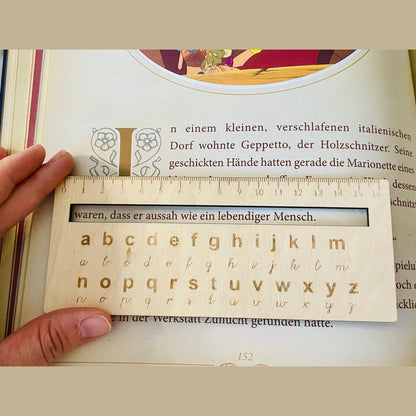 I
n einem kleinen, verschlafenen italienischen
Dorf wohnte Geppetto, der Holzschnitzer. Seine
geschickten Hände hatten gerade die Marionette eines
0 1 2 3 4 5 6 7 8 9 10 11 12 13 14 15
waren, dass er aussah wie ein lebendiger Mensch.
a b c d e f g h i j k l m
a b c d e f g h i j k l m
n o p q r s t u v w x y z
n o p q r s t u v w x y z
in der Werkstatt Zuflucht gefunden hatte.
152